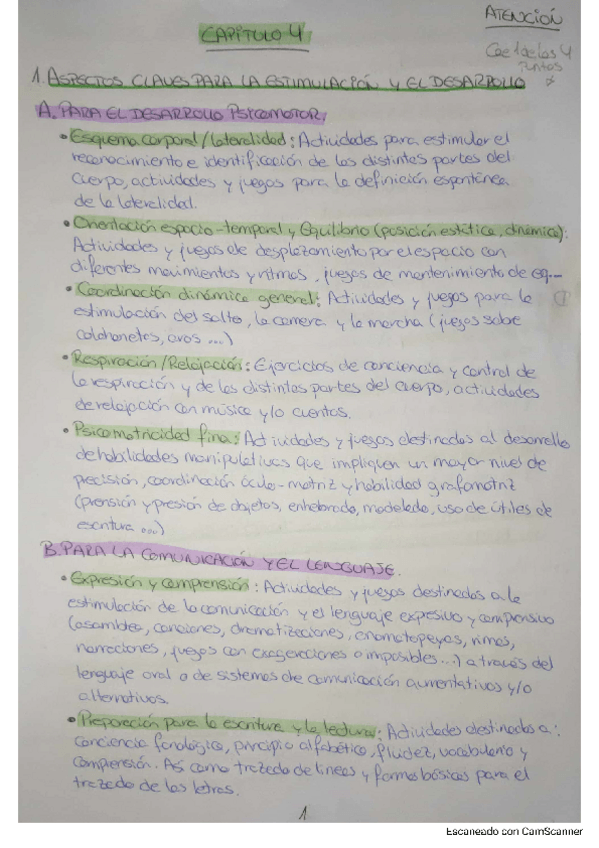 ATENCIÓN
CAPÍTULO 4
Cae de los 4
puntos
1. ASPECTOS CLAVES PARA LA ESTIMULACIÓN Y EL DESARROLLO
A. PARA EL DESARROLLO PSICOMOTOR.
• Esquema corporal/lateralidad: Actividades para estimular el
reconocimiento e identificación de las distintas partes del
cuerpo, actividades y juegos para la definición espontánea
de la lateralidad.
• Orientación espacio-temporal y Equilibrio (posición estática, dinámica):
Actividades y juegos de desplazamiento por el espacio con
diferentes movimientos y ritmos, juegos de mantenimiento de eq---
• Coordinación dinámica general: Actividades y juegos para la
estimulación del salto, la carrera y la marcha (juegos sobre
colchonetas, aros ...)
• Respiración/Relajación: Ejercicios de conciencia y control de
la respiración y de las distintas partes del cuerpo, actividades
de relajación con música y/o cuentos.
• Psicomotricidad fina: Actividades y juegos destinados al desarrollo
de habilidades manipulativas que impliquen un mayor nivel de
precisión, coordinación óculo-motriz y habilidad grafomotriz
(prensión y presión de objetos, enhebrado, modelado, uso de útiles de
escritura ...)
B. PARA LA COMUNICACIÓN Y EL LENGUAJE.
• Expresión y comprensión: Actividades y juegos destinados a la
estimulación de la comunicación y el lenguaje expresivo y comprensivo
(asamblea, canciones, dramatizaciones, onomatopeyas, rimas,
narraciones, juegos con exageraciones o imposibles...) a través del
lenguaje oral o de sistemas de comunicación aumentativos y/o
alternativos.
• Preparación para la escritura y la lectura: Actividades destinadas a:
conciencia fonológica, principio alfabético, fluidez, vocabulario y
comprensión. Así como trazado de líneas y formas básicas para el
trazado de las letras.
1
Escaneado con CamScanner